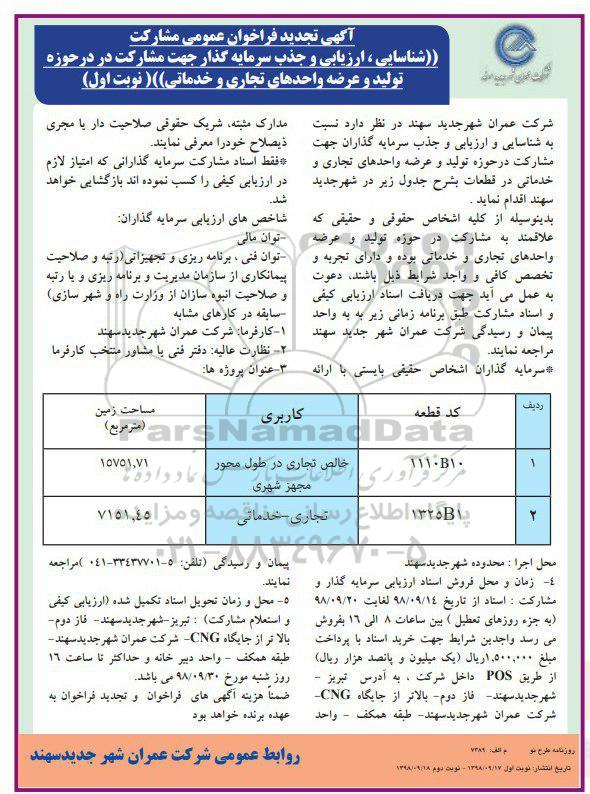 آگهی تجدید فراخوان عمومی مشارکت
((شناسایی ، ارزیابی و جذب سرمایه گذار جهت مشارکت در درحوزه
تولید و عرضه واحدهای تجاری و خدماتی))( نوبت اول)
شرکت عمران شهرجدید سهند
شرکت عمران شهرجدید سهند در نظر دارد نسبت
به شناسایی و ارزیابی و جذب سرمایه گذاران جهت
مشارکت درحوزه تولید و عرضه واحدهای تجاری و
خدماتی در قطعات بشرح جدول زیر در شهرجدید
سهند اقدام نماید .
بدینوسیله از کلیه اشخاص حقوقی و حقیقی که
علاقمند به مشارکت در حوزه تولید و عرضه
واحدهای تجاری و خدماتی بوده و دارای تجربه و
تخصص کافی و واجد شرایط ذیل باشند، دعوت
به عمل می آید جهت دریافت اسناد ارزیابی کیفی
و اسناد مشارکت طبق برنامه زمانی زیر به به واحد
پیمان و رسیدگی شرکت عمران شهر جدید سهند
مراجعه نمایند.
*سرمایه گذاران اشخاص حقیقی بایستی با ارائه
مدارک مثبته، شریک حقوقی صلاحیت دار یا مجری
ذیصلاح خودرا معرفی نمایند.
*فقط اسناد مشارکت سرمایه گذارانی که امتیاز لازم
در ارزیابی کیفی را کسب نموده اند بازگشایی خواهد
شد.
شاخص های ارزیابی سرمایه گذاران:
-توان مالی
-توان فنی ، برنامه ریزی و تجهیزاتی(رتبه و صلاحیت
پیمانکاری از سازمان مدیریت و برنامه ریزی و یا رتبه
و صلاحیت انبوه سازان از وزارت راه و شهر سازی)
-سابقه در کارهای مشابه
۱-کارفرما: شرکت عمران شهرجدیدسهند
۲- نظارت عالیه: دفتر فنی یا مشاور منتخب کارفرما
۳-عنوان پروژه ها:
ردیف کد قطعه کاربری مساحت زمین (مترمربع)
۱ ۱۱۱۰B۱۰ خالص تجاری در طول محور مجهز شهری ۱۵۷۵۱,۷۱
۲ ۱۳۲۵B۱ تجاری-خدماتی ۷۱۵۱,۴۵
ParsNamadData
مرکز فرآوری اطلاعات پارس نماد داده ها
پایگاه اطلاع رسانی مناقصه و مزایده
۰۲۱-۸۸۳۴۹۶۷۰-۵
محل اجرا : محدوده شهرجدیدسهند
۴- زمان و محل فروش اسناد ارزیابی سرمایه گذار و
مشارکت : اسناد از تاریخ ۹۸/۰۹/۱۴ لغایت ۹۸/۰۹/۲۰
(به جزء روزهای تعطیل ) بین ساعات ۸ الی ۱۶ بفروش
می رسد واجدین شرایط جهت خرید اسناد با پرداخت
مبلغ ۱,۵۰۰,۰۰۰ریال (یک میلیون و پانصد هزار ریال)
از طریق POS داخل شرکت ، به آدرس تبریز -
شهرجدیدسهند- فاز دوم- بالاتر از جایگاه CNG-
شرکت عمران شهرجدیدسهند- طبقه همکف - واحد
پیمان و رسیدگی (تلفن: ۵-۳۳۴۳۷۷۰۱-۰۴۱ )مراجعه
نمایند.
۵- محل و زمان تحویل اسناد تکمیل شده (ارزیابی کیفی
و استعلام مشارکت) : تبریز-شهرجدیدسهند- فاز دوم-
بالا تر از جایگاه CNG- شرکت عمران شهرجدیدسهند-
طبقه همکف - واحد دبیر خانه و حداکثر تا ساعت ۱۶
روز شنبه مورخ ۹۸/۰۹/۳۰ می باشد.
ضمناً هزینه آگهی های فراخوان و تجدید فراخوان به
عهده برنده خواهد بود
روابط عمومی شرکت عمران شهر جدیدسهند
روزنامه طرح نو م الف: ۷۳۸۹
تاریخ انتشار: نوبت اول ۱۳۹۸/۰۹/۱۷ - نوبت دوم ۱۳۹۸/۰۹/۱۸